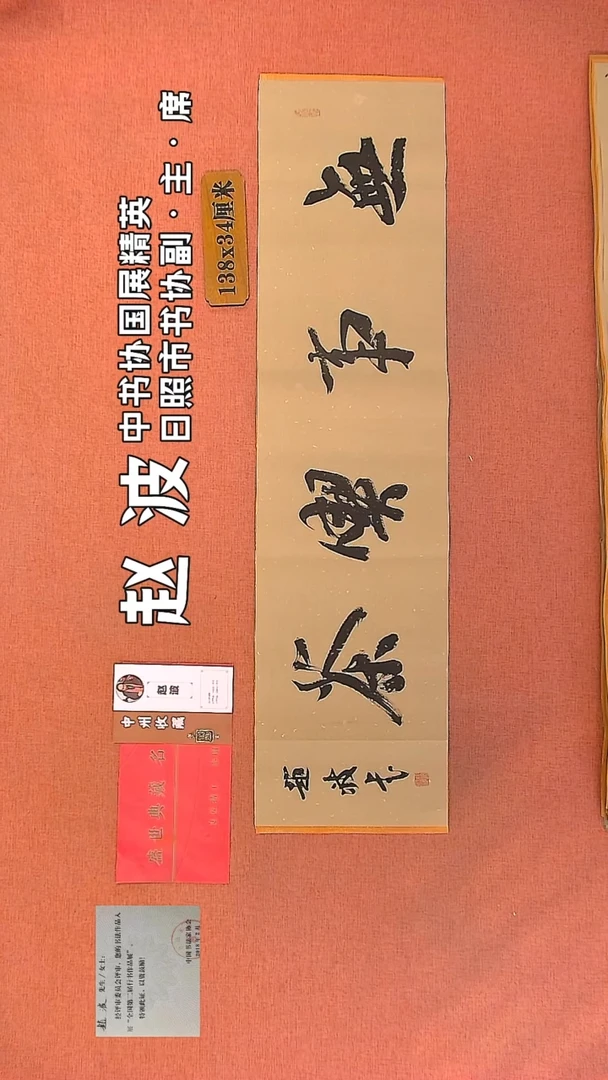 赵 波
中书协国展精英
日照市书协副·主·席
138x34厘米
無事喫茶
趙波书
赵波
中州收藏
盛世典藏
赵波 先生/女士:
经评审委员会评审,您的书法作品入
展“全国第二届行书作品展”。
特颁此证,以资鼓励!
中国书法家协会